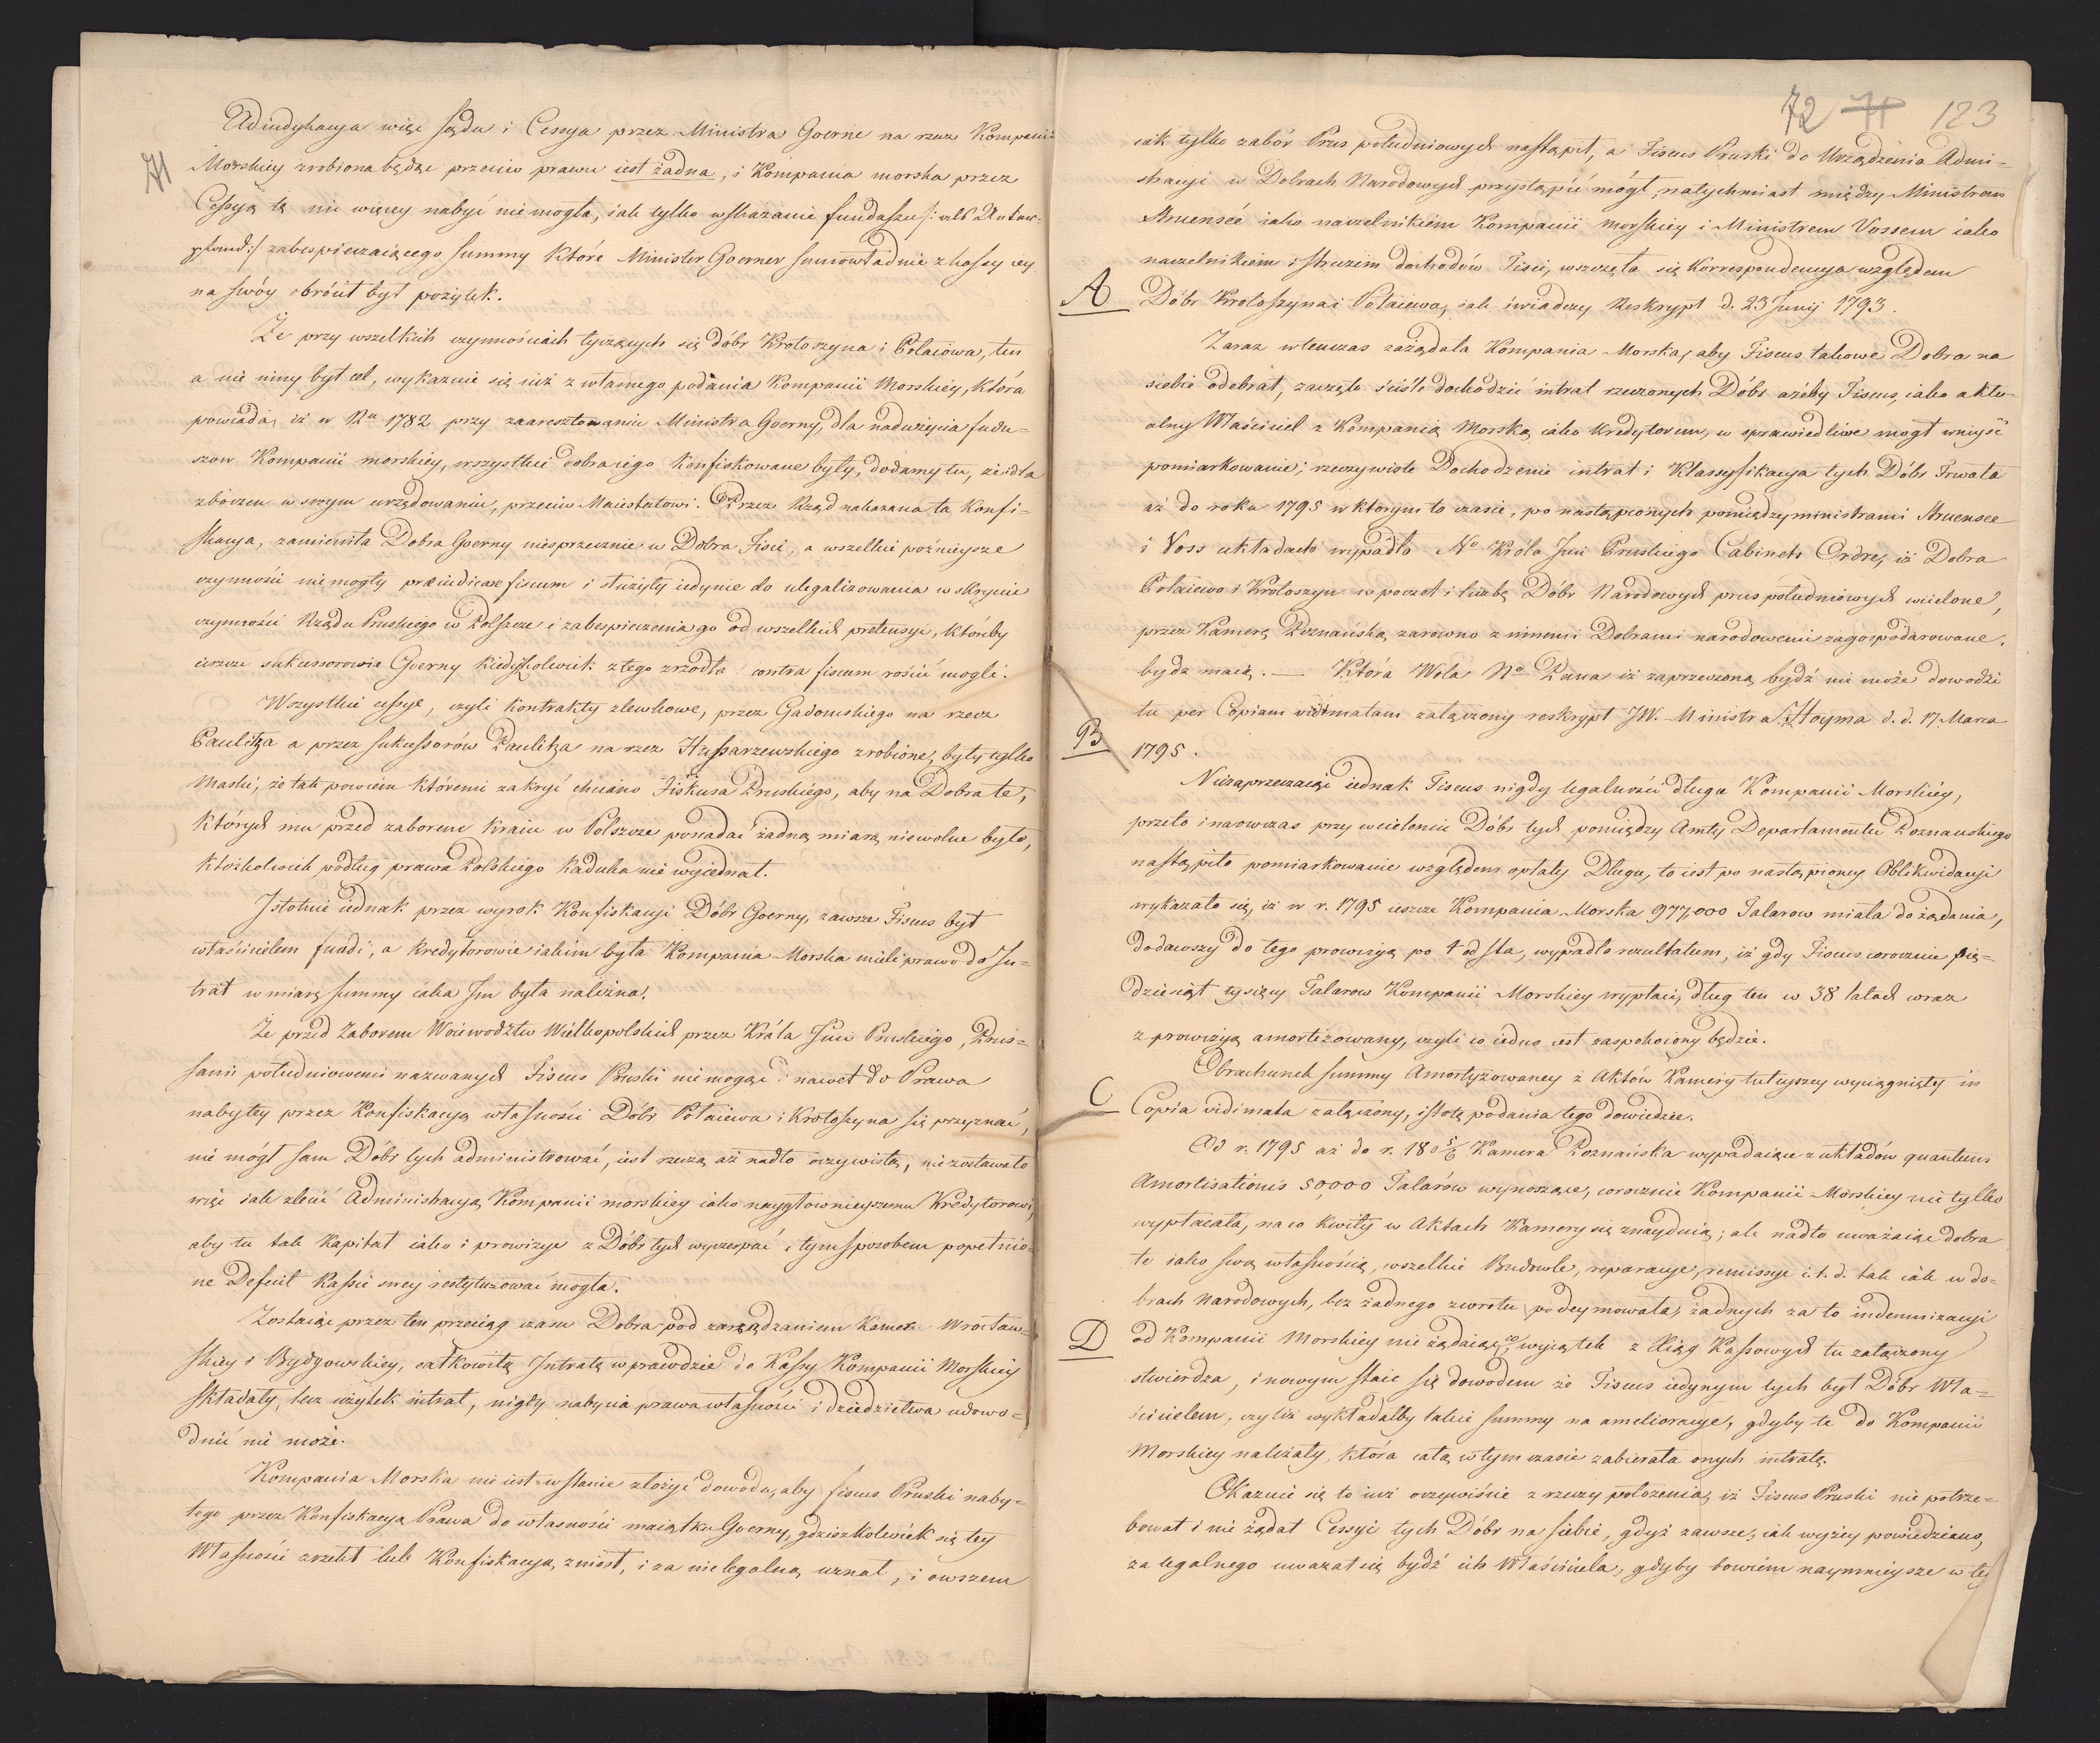 71
Adiudykacya więc sądu i Cessya przez Ministra Goerne na rzecz Kompanii
Morskiey zrobiona będąc przeciw prawu iest żadna, i Kompania morska przez
Cessyą tą nic więcey nabyć nie mogła, iak tylko wskazanie funduszu /: als Unter-
pfand :/ zabespieczaiącego summy które Minister Goerner samowładnie z kassy iey
na swóy obrócił był pożytek.
Że przy wszelkich czynnościach tyczących się dóbr Krotoszyna i Połaiewa, ten
a nie inny był cel, wykazuie się iuż z własnego podania Kompanii Morskiey, która
powiada, iż w Ru 1782 przy zaaresztowaniu Ministra Goerny, dla nadużycia fudu-
szow Kompanii morskiey, wszystkie dobra iego konfiskowane były, dodamy tu, że i dla
zboczeń w swym urzędowaniu, przeciw Maiestatowi. Przez Rząd nakazana ta Konfi-
skacya, zamieniła Dobra Goerny niesprzecznie w Dobra Fisci, a wszelkie poźnieysze
czynności niemogły praeiudicare fiscum i służyły iedynie do ulegalizowania w skrycie
czynności Rządu Pruskiego w Polszcze i zabespieczenia go od wszelkich pretensyi, któreby
ieszcze sukcessorowie Goerny kiedyżkolwiek z tego zrzodła contra fiscum rościć mogli.
Wszystkie cessye, czyli kontrakty zlewkowe, przez Gadomskiego na rzecz
Paulitza a przez sukcessorów Paulitza na rzez Hussarzewskiego zrobione, były tylko
maski, że tak powiem któremi zakryć chciano Fiskusa Pruskiego, aby na Dobra te,
których mu przed zaborem kraiu w Polszcze posiadać żadną miarą niewolne było,
ktożkolwiek podług prawa Polskiego Kaduka nie wyiednał.
Istotnie iednak przez wyrok Konfiskacyi Dóbr Goerny, zawsze Fiscus był
właścicielem fundi, a kredytorowie iakim była Kompania Morska mieli prawo do In-
trat w miarę summy iaka Im była należna.
Że przed Zaborem Woiewodztw Wielkopolskich przez Króla Imci Pruskiego, Prus-
sami południowemi nazwanych Fiscus Pruski niemogąc nawet do Prawa
nabytey przez Konfiskacyą własności Dóbr Połaiewa i Krotoszyna się przyznać,
nie mógł sam Dóbr tych administrować, iest rzeczą aż nadto oczywistą, nie zostawało
więc iak zlecić Administracyą Kompanii morskiey iako naygłownieyszemu Kredytorowi,
aby tu tak Kapitał iako i prowizye z Dóbr tych wyczerpać i tym sposobem popełnio-
ne Deficit Kassie swey restytuować mogła.
Zostaiąc przez ten przeciąg czasu Dobra pod zarządzaniem Kamer Wrocław-
skiey i Bydgowskiey, całkowitą Intratę wprawdzie do Kassy Kompanii Morskiey
składały, lecz użytek intrat, nigdy nabycia prawa własności i dziedzictwa udowo-
dnić nie może.
Kompania Morska nie iest w stanie złożyć dowodu, aby fiscus Pruski naby-
tego przez Konfiskacyą Prawa do własności maiątku Goerny, gdzieszkolwiek się tey
Własności zrzekł lub Konfiskacyą zniosł, i za nielegalną uznał, i owszem
72 71 123
iak tylko zabór Prus południowych nastąpił, a Fiscus Pruski do Urządzenia Admi-
stracyi w Dobrach Narodowych przystąpić mógł, natychmiast między Ministrem
Struenseé iako naczelnikiem Kompanii morskiey i Ministrem Vossem iako
naczelnikiem i struzim dochodów Fisci, wszczęła się Korrespondencya względem
A Dóbr Krotoszyna i Połaiewa, iak świadczy Reskrypt d. 23 Junij 1793.
Zaraz wtenczas zażądała Kompania Morska, aby Fiscus takowe Dobra na
siebie odebrał, zaczęto ściśle dochodzić intrat rzeczonych Dóbr ażeby Fiscus, iako aktu-
alny Właściciel z Kompanią Morską iako kredytorem, w sprawiedliwe mogł wniyść
pomiarkowanie; rzeczywiste Dochodzenie intrat i Klassyfikacya tych Dóbr trwała
aż do roku 1795 w którym to czasie, po nastąpionych pomiędzy ministrami Struensee
i Voss układach wypadło No Króla Imci Pruskiego Cabinets Ordre, iż Dobra
Połaiewo i Krotoszyn w poczet i liczbę Dóbr Narodowych prus południowych wcielone,
przez Kamerę Poznańską zarowno z innemi Dobrami narodowemi zagospodarowane.
bydz maią. — Która Wola No Pana iż zaprzeczoną bydź nie może dowodzi
tu per Copiam vidimatam załączony reskrypt JW. Ministra Hoyma d. d. 17. Marca
B 1795.
Niezaprzeczaiąc iednak Fiscus nigdy legalności długu Kompanii Morskiey,
przeto i naowczas przy wcieleniu Dóbr tych pomiędzy Amty Departamentu Poznanskiego
nastąpiło pomiarkowanie względem opłaty Długu, to iest po nastąpioney Oblikwidacyi
wykazało się, iż w r. 1795 ieszcze Kompania Morska 977,000 Talarow miała do żądania,
dodawszy do tego prowizyą po 4 od sta, wypadło rezultatum, iż gdy Fiscus corocznie pię-
dziesiąt tysięcy Talarow Kompanii Morskiey wypłaci, dług ten w 38 latach wraz
z prowizyą amortizowany, czyli co iedno iest zaspokoiony będzie.
Obrachunek summy Amortyzowaney z Aktów Kamery tuteyszey wyciągnięty in
C Copia vidimata załączony, istotę podania tego dowiedzie.
Od r. 1795 aż do r. 180 5/6 Kamera Poznańska wypadaiące z układów quantum
Amortisationis 50,000 Talarów wynoszące, corocznie Kompanii Morskiey nie tylko
wypłacała, na co kwity w Aktach Kamery się znayduią; ale nadto uważaiąc dobra
te iako swą własnością, wszelkie Budowle, reparacye, remissye i. t. d. tak iak w do-
brach Narodowych, bez żadnego zwrotu podeymowała, żadnych za to indemnizacyi
D od Kompanii Morskiey nie żądaiąc, co wyciątek z Xiąg Kassowych tu załączony
stwierdza, i nowym staie się dowodem że Fiscus iedynym tych był Dóbr Wła-
ścicielem, czyliż wykładałby takie summy na amelioracye, gdyby te do Kompanii
Morskiey należały, która całą w tym czasie zabierała onych intratę.
Okazuie się to iuż oczywiście z rzeczy położenia, iż Fiscus Pruski nie potrze-
bował i nie żądał Cessyi tych Dóbr na siebie, gdyż zawsze, iak wyżey powiedziano,
za legalnego uważał się bydź ich Właściciela, gdyby bowiem naymnieysze w tey